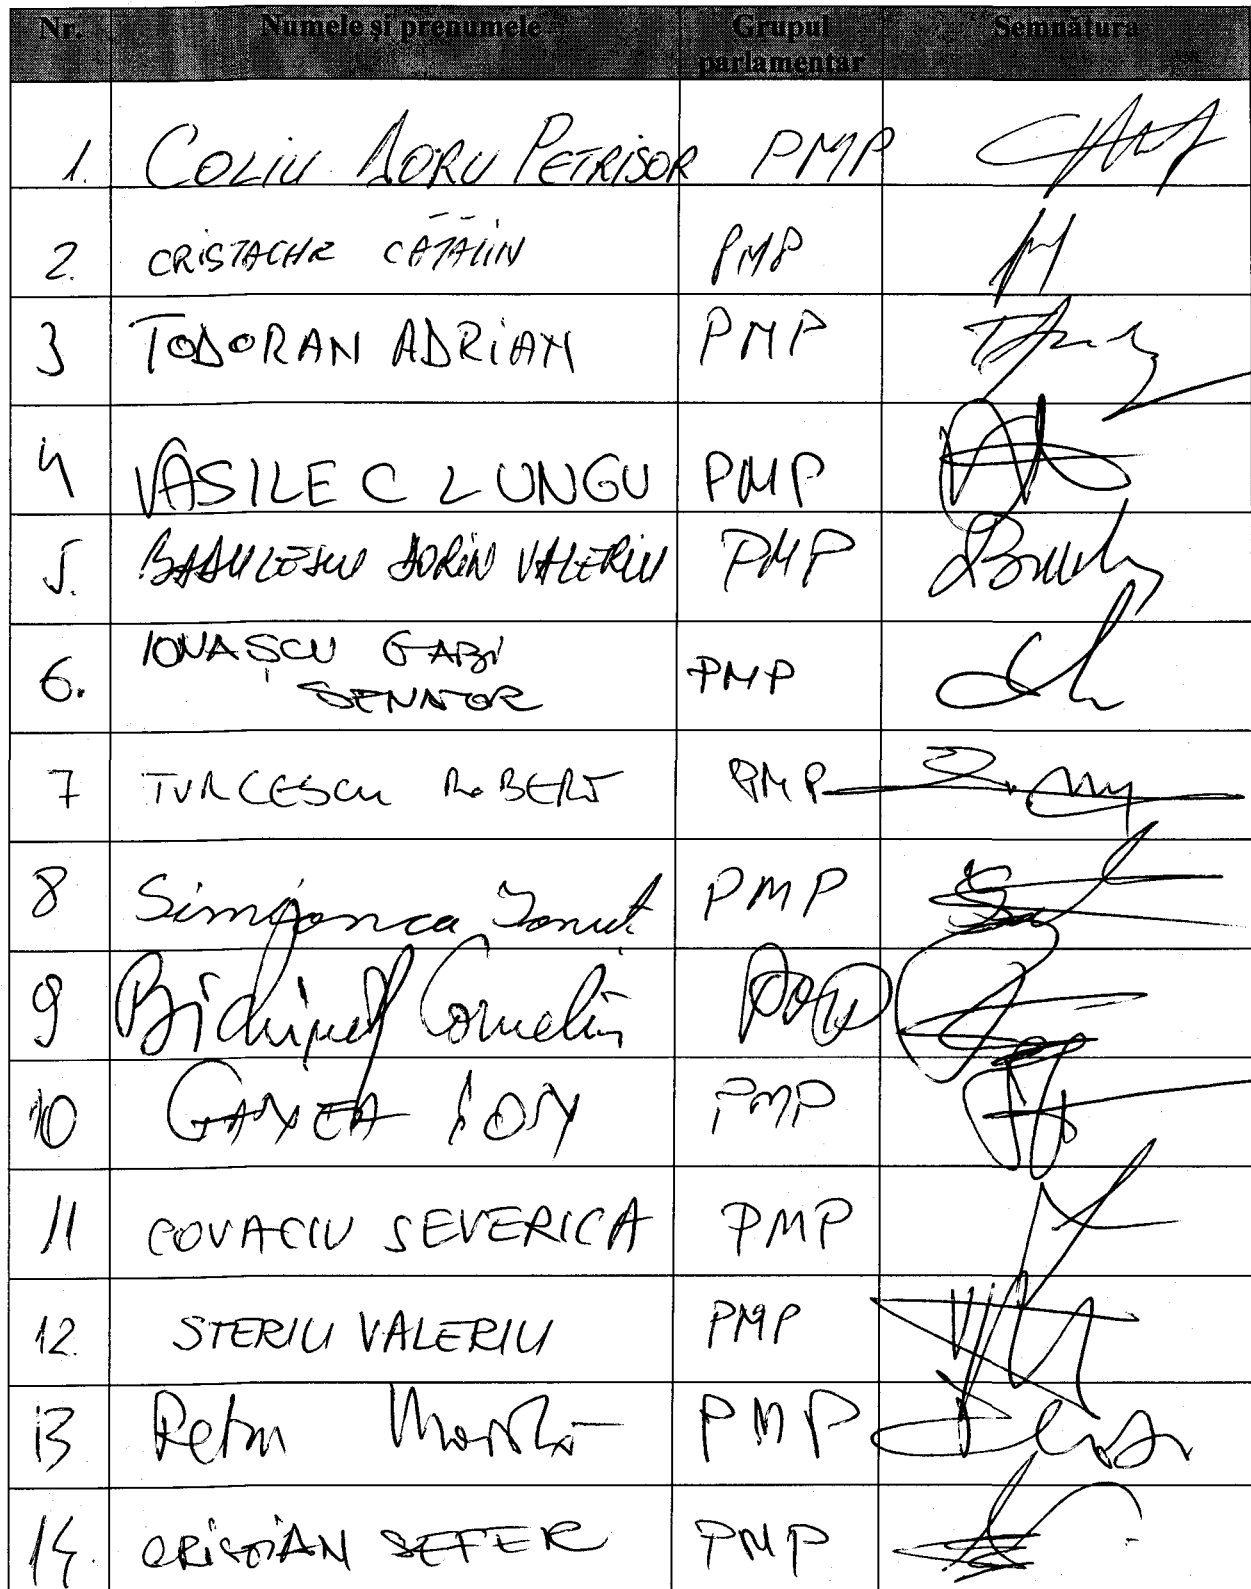 Nr. Numele și prenumele Grupul parlamentar Semnătura
1. COLIU DORU PETRISOR PMP
2. CRISTACHE CĂTĂLIN PMP
3 TODORAN ADRIAN PMP
4 VASILE C LUNGU PMP
5. BADULESCU DORIN VALERIU PMP
6. IONAȘCU GABI PMP
SENATOR
7 TURCESCU ROBERT PMP
8 Simionca Ionut PMP
9 Bichineț Corneliu PMP
10 PMP
11 COVACIU SEVERICA PMP
12. STERIU VALERIU PMP
13 Petru PMP
14. CRISTIAN SEFER PMP